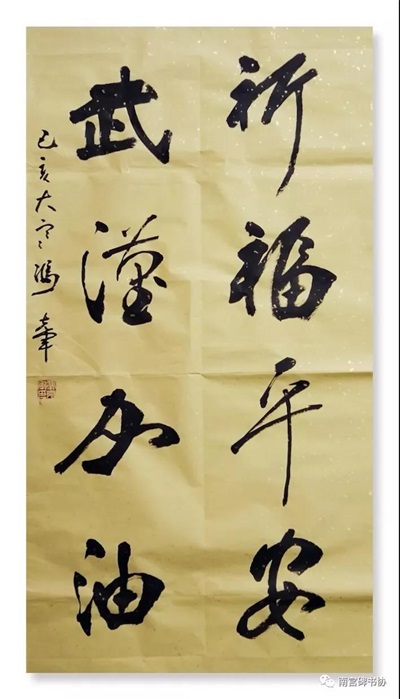 祈福平安
武漢加油
己亥大寒冯肇
南宫碑书协